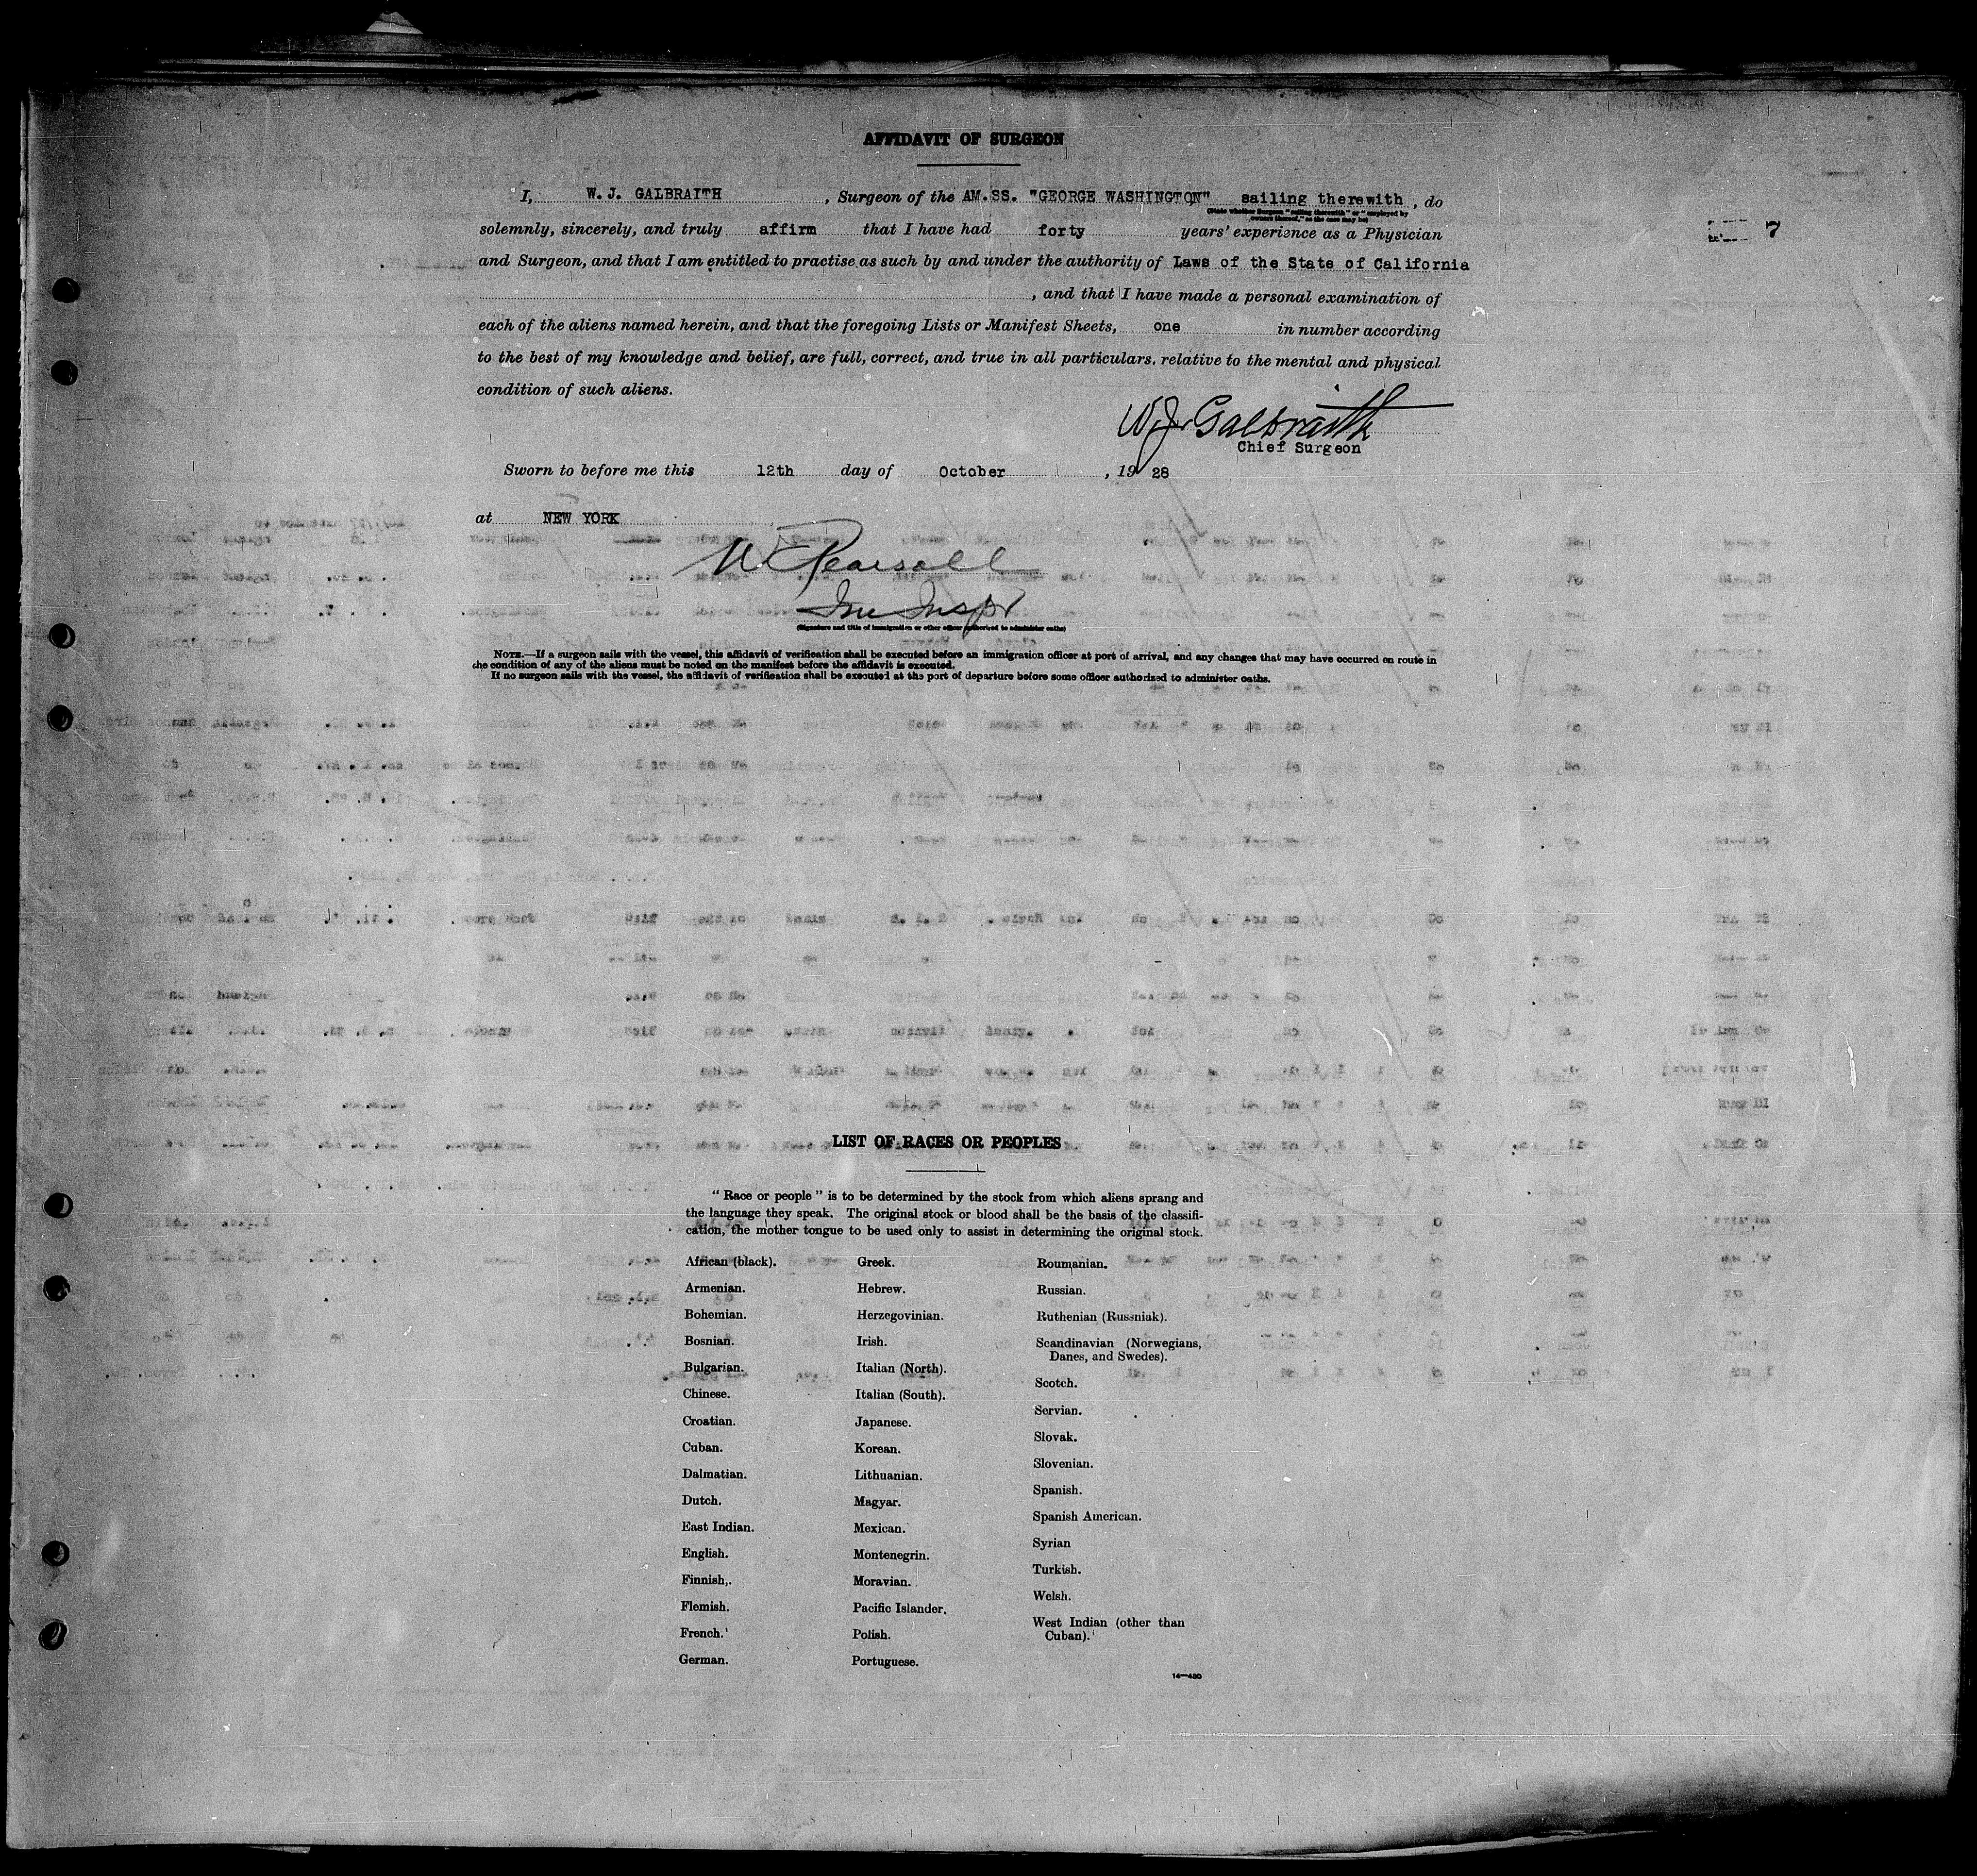 AFFIDAVIT OF SURGEON
7
I, W. J. GALBRAITH , Surgeon of the AM.SS. "GEORGE WASHINGTON" sailing therewith , do
(State whether Surgeon "sailing therewith" or "employed by
owners thereof," as the case may be)
solemnly, sincerely, and truly affirm that I have had forty years' experience as a Physician
and Surgeon, and that I am entitled to practise as such by and under the authority of Laws of the State of California
, and that I have made a personal examination of
each of the aliens named herein, and that the foregoing Lists or Manifest Sheets, one in number according
to the best of my knowledge and belief, are full, correct, and true in all particulars, relative to the mental and physical
condition of such aliens.
W J Galbraith
Chief Surgeon
Sworn to before me this 12th day of October , 19 28
at NEW YORK
W Pearsall
Imm Inspr
(Signature and title of immigration or other officer authorized to administer oaths)
NOTE.—If a surgeon sails with the vessel, this affidavit of verification shall be executed before an immigration officer at port of arrival, and any changes that may have occurred en route in
the condition of any of the aliens must be noted on the manifest before the affidavit is executed.
If no surgeon sails with the vessel, the affidavit of verification shall be executed at the port of departure before some officer authorized to administer oaths.
LIST OF RACES OR PEOPLES
"Race or people" is to be determined by the stock from which aliens sprang and
the language they speak. The original stock or blood shall be the basis of the classifi-
cation, the mother tongue to be used only to assist in determining the original stock.
African (black).
Armenian.
Bohemian.
Bosnian.
Bulgarian.
Chinese.
Croatian.
Cuban.
Dalmatian.
Dutch.
East Indian.
English.
Finnish.
Flemish.
French.
German.
Greek.
Hebrew.
Herzegovinian.
Irish.
Italian (North).
Italian (South).
Japanese.
Korean.
Lithuanian.
Magyar.
Mexican.
Montenegrin.
Moravian.
Pacific Islander.
Polish.
Portuguese.
Roumanian.
Russian.
Ruthenian (Russniak).
Scandinavian (Norwegians,
Danes, and Swedes).
Scotch.
Servian.
Slovak.
Slovenian.
Spanish.
Spanish American.
Syrian
Turkish.
Welsh.
West Indian (other than
Cuban).
14—480